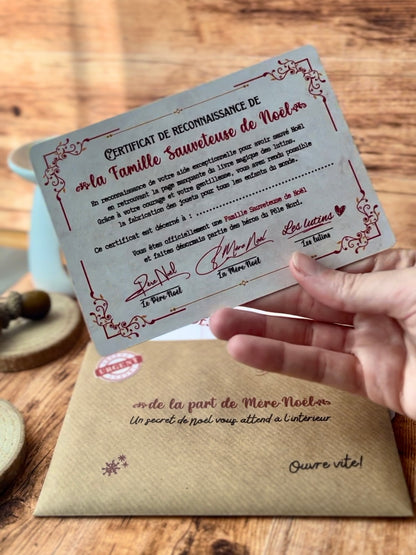 CERTIFICAT DE RECONNAISSANCE DE
la Famille Sauveteuse de Noël
En reconnaissance de votre aide exceptionnelle pour avoir sauvé Noël
en retrouvant la page manquante du livre magique des lutins.
Grâce à votre courage et votre gentillesse, vous avez rendu possible
la fabrication des jouets pour tous les enfants du monde.
Ce certificat est décerné à :
Vous êtes officiellement une Famille Sauveteuse de Noël
et faites désormais partie des héros du Pôle Nord.
Père Noël
Mère Noël
Les lutins
Le Père Noël
La Mère Noël
Les lutins
URGENT
de la part de Mère Noël
Un secret de Noël vous attend à l'intérieur
Ouvre vite!